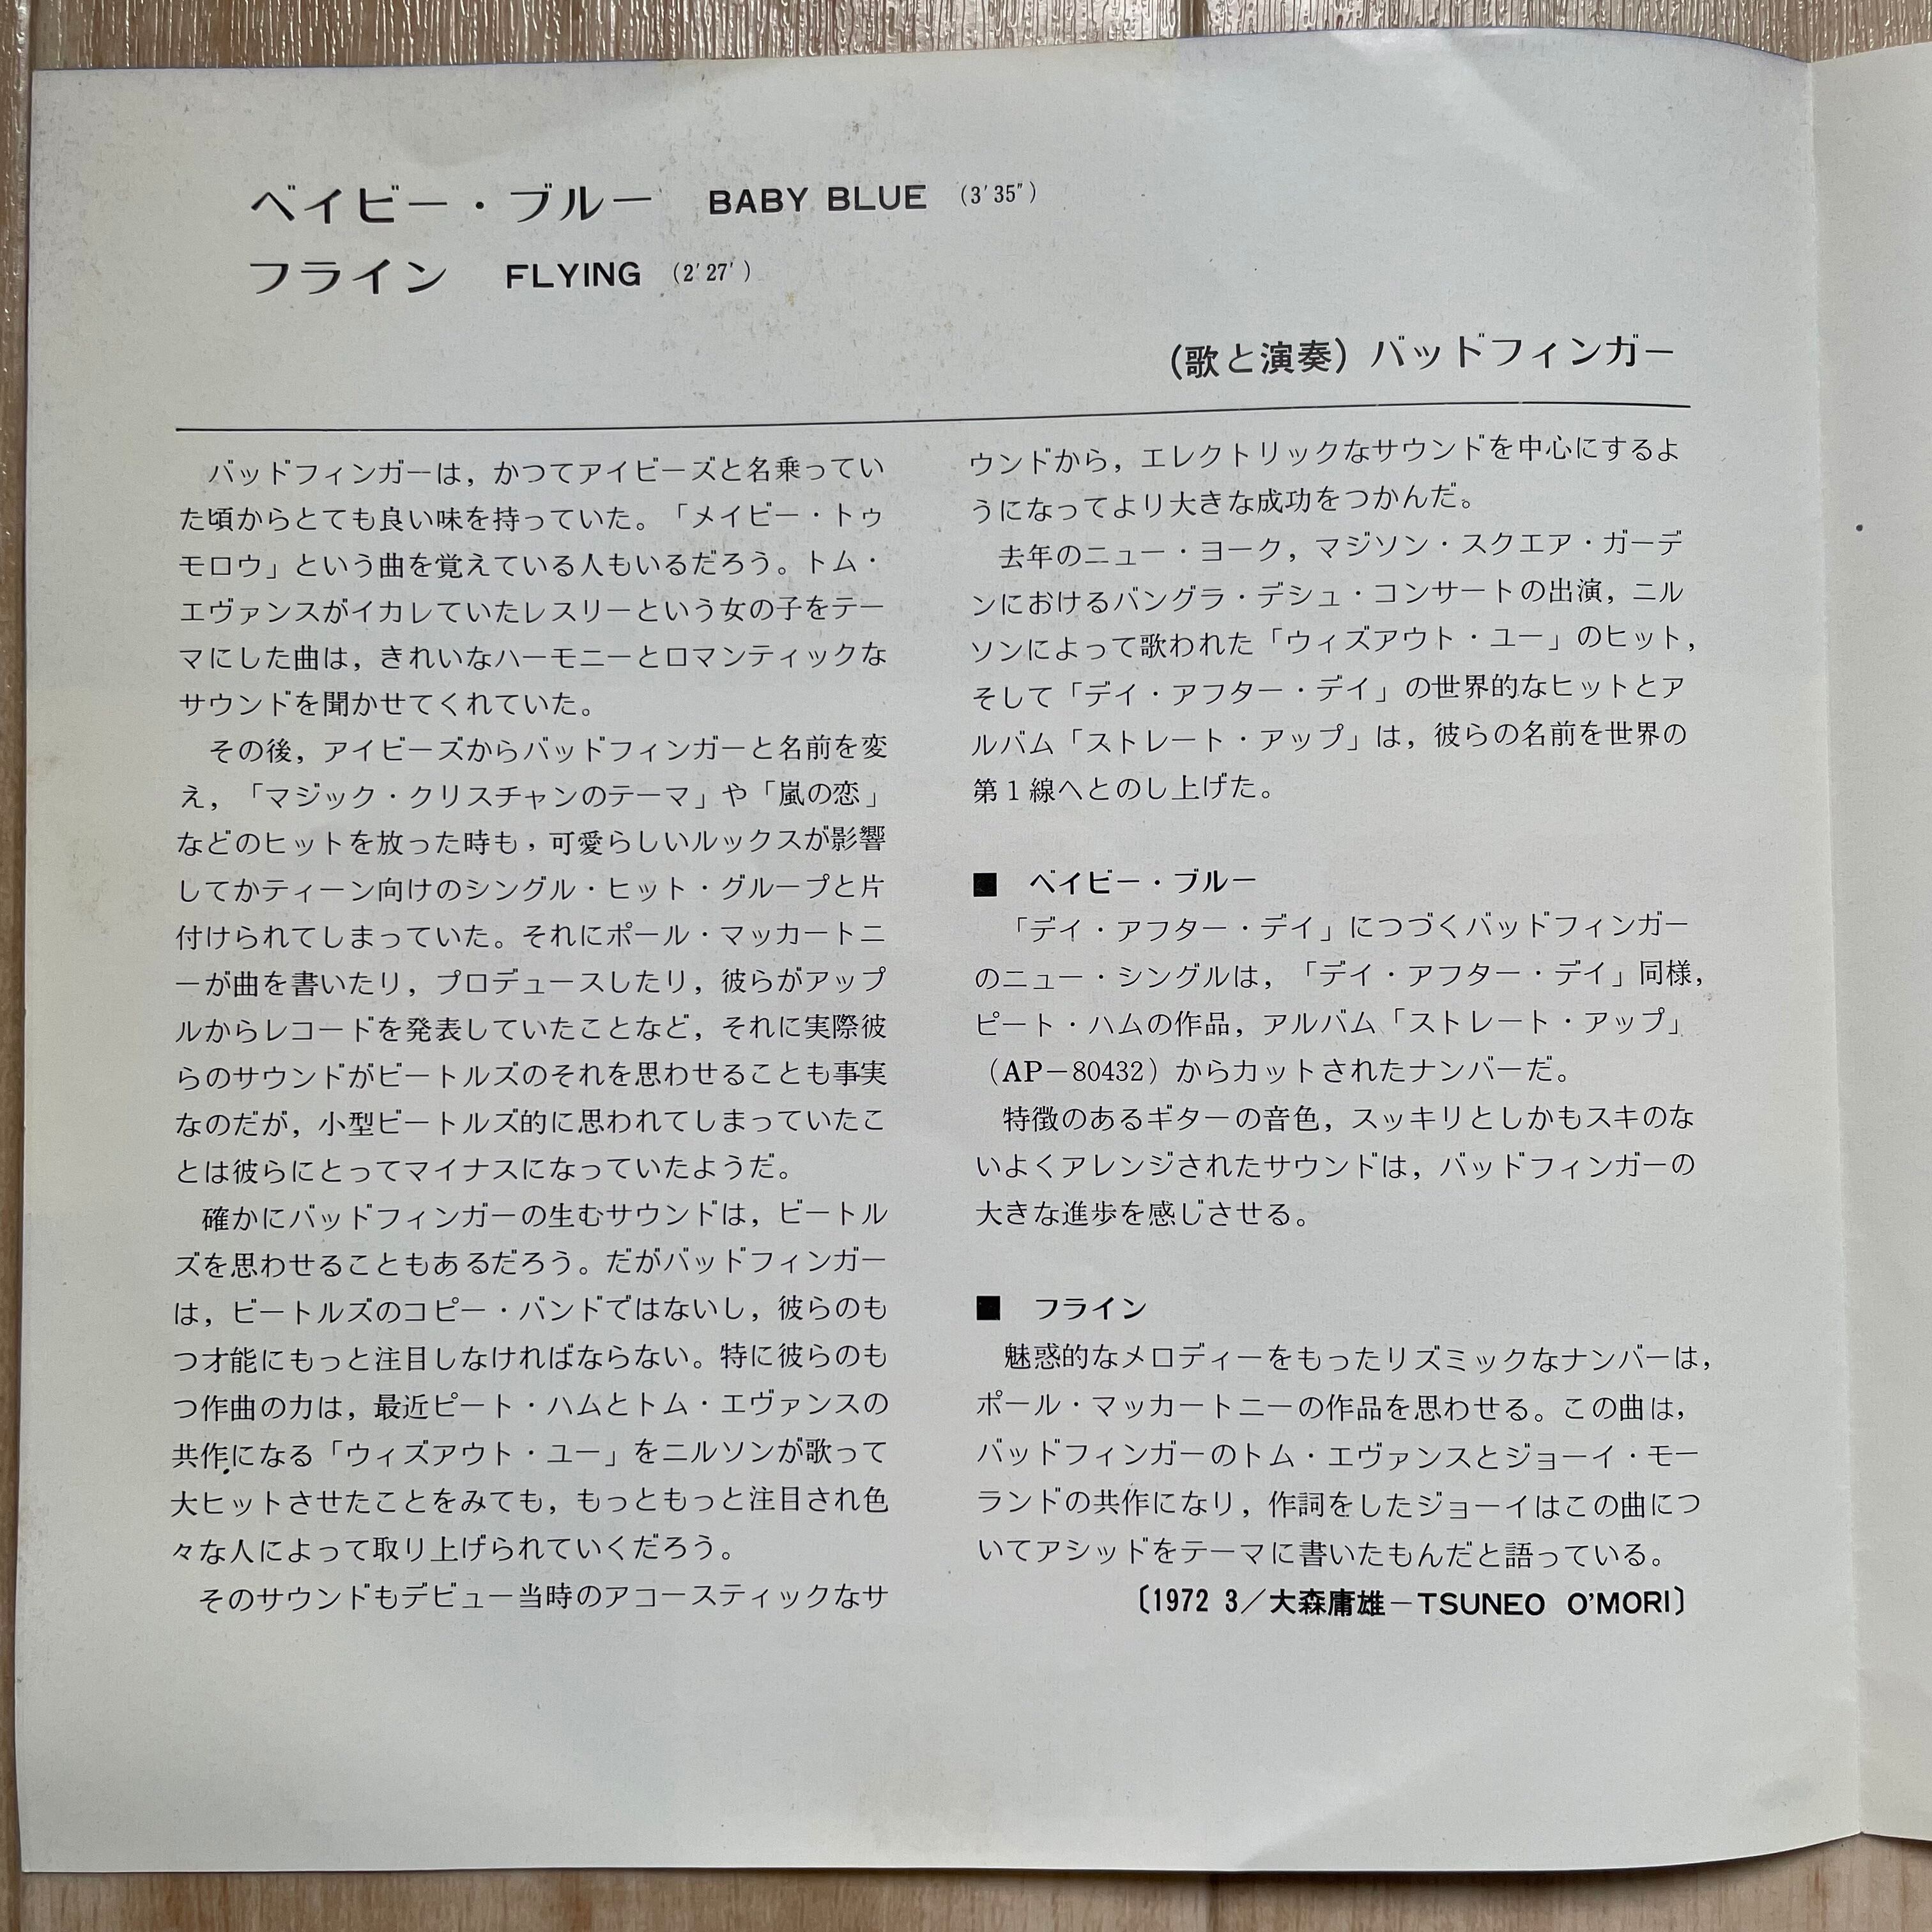 ベイビー・ブルー　BABY BLUE　(3′35″)
フライン　FLYING　(2′27′)
(歌と演奏) バッドフィンガー
バッドフィンガーは，かつてアイビーズと名乗ってい
た頃からとても良い味を持っていた。「メイビー・トゥ
モロウ」という曲を覚えている人もいるだろう。トム・
エヴァンスがイカレていたレスリーという女の子をテー
マにした曲は，きれいなハーモニーとロマンティックな
サウンドを聞かせてくれていた。
その後，アイビーズからバッドフィンガーと名前を変
え，「マジック・クリスチャンのテーマ」や「嵐の恋」
などのヒットを放った時も，可愛らしいルックスが影響
してかティーン向けのシングル・ヒット・グループと片
付けられてしまっていた。それにポール・マッカートニ
ーが曲を書いたり，プロデュースしたり，彼らがアップ
ルからレコードを発表していたことなど，それに実際彼
らのサウンドがビートルズのそれを思わせることも事実
なのだが，小型ビートルズ的に思われてしまっていたこ
とは彼らにとってマイナスになっていたようだ。
確かにバッドフィンガーの生むサウンドは，ビートル
ズを思わせることもあるだろう。だがバッドフィンガー
は，ビートルズのコピー・バンドではないし，彼らのも
つ才能にもっと注目しなければならない。特に彼らのも
つ作曲の力は，最近ピート・ハムとトム・エヴァンスの
共作になる「ウィズアウト・ユー」をニルソンが歌って
大ヒットさせたことをみても，もっともっと注目され色
々な人によって取り上げられていくだろう。
そのサウンドもデビュー当時のアコースティックなサ
ウンドから，エレクトリックなサウンドを中心にするよ
うになってより大きな成功をつかんだ。
去年のニュー・ヨーク，マジソン・スクエア・ガーデ
ンにおけるバングラ・デシュ・コンサートの出演，ニル
ソンによって歌われた「ウィズアウト・ユー」のヒット，
そして「デイ・アフター・デイ」の世界的なヒットとア
ルバム「ストレート・アップ」は，彼らの名前を世界の
第1線へとのし上げた。
■　ベイビー・ブルー
「デイ・アフター・デイ」につづくバッドフィンガー
のニュー・シングルは，「デイ・アフター・デイ」同様，
ピート・ハムの作品，アルバム「ストレート・アップ」
（AP－80432）からカットされたナンバーだ。
特徴のあるギターの音色，スッキリとしかもスキのな
いよくアレンジされたサウンドは，バッドフィンガーの
大きな進歩を感じさせる。
■　フライン
魅惑的なメロディーをもったリズミックなナンバーは，
ポール・マッカートニーの作品を思わせる。この曲は，
バッドフィンガーのトム・エヴァンスとジョーイ・モー
ランドの共作になり，作詞をしたジョーイはこの曲につ
いてアシッドをテーマに書いたもんだと語っている。
〔1972 3／大森庸雄－TSUNEO O'MORI〕